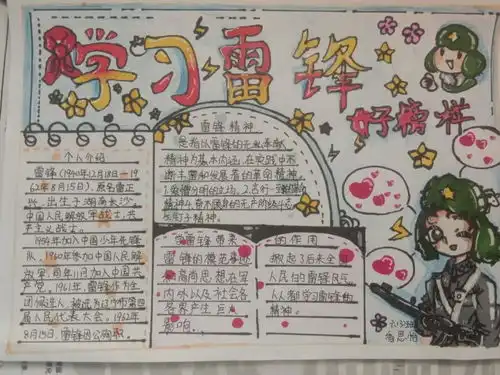 学习雷锋
好榜样
个人介绍
雷锋(1940年12月18日—19
62年8月15日)，原名雷正
兴，出生于湖南长沙，
中国人民解放军战士，共
产主义战士。
1954年加入中国少年先锋
队，1960年参加中国人民解
放军，同年11月加入中国共
产党。1961年，雷锋作为生
团候选人，被选为辽宁省第四
届人民代表大会。1962年
8月15日，雷锋因公殉职。
雷锋精神
是指以雷锋的无私奉献
精神为基本内涵，在实践中不
断丰富和发展着的革命精神。
1.爱憎分明的立场。2.言行一致的
精神4.奋不顾身的无产阶级斗志
钉子精神。
雷锋带来的作用
雷锋的模范事迹
高尚思想在军
内外以及社会各
界产生巨大
影响。
掀起了后来全国
人民的雷锋风气
人人都学习雷锋的
精神。